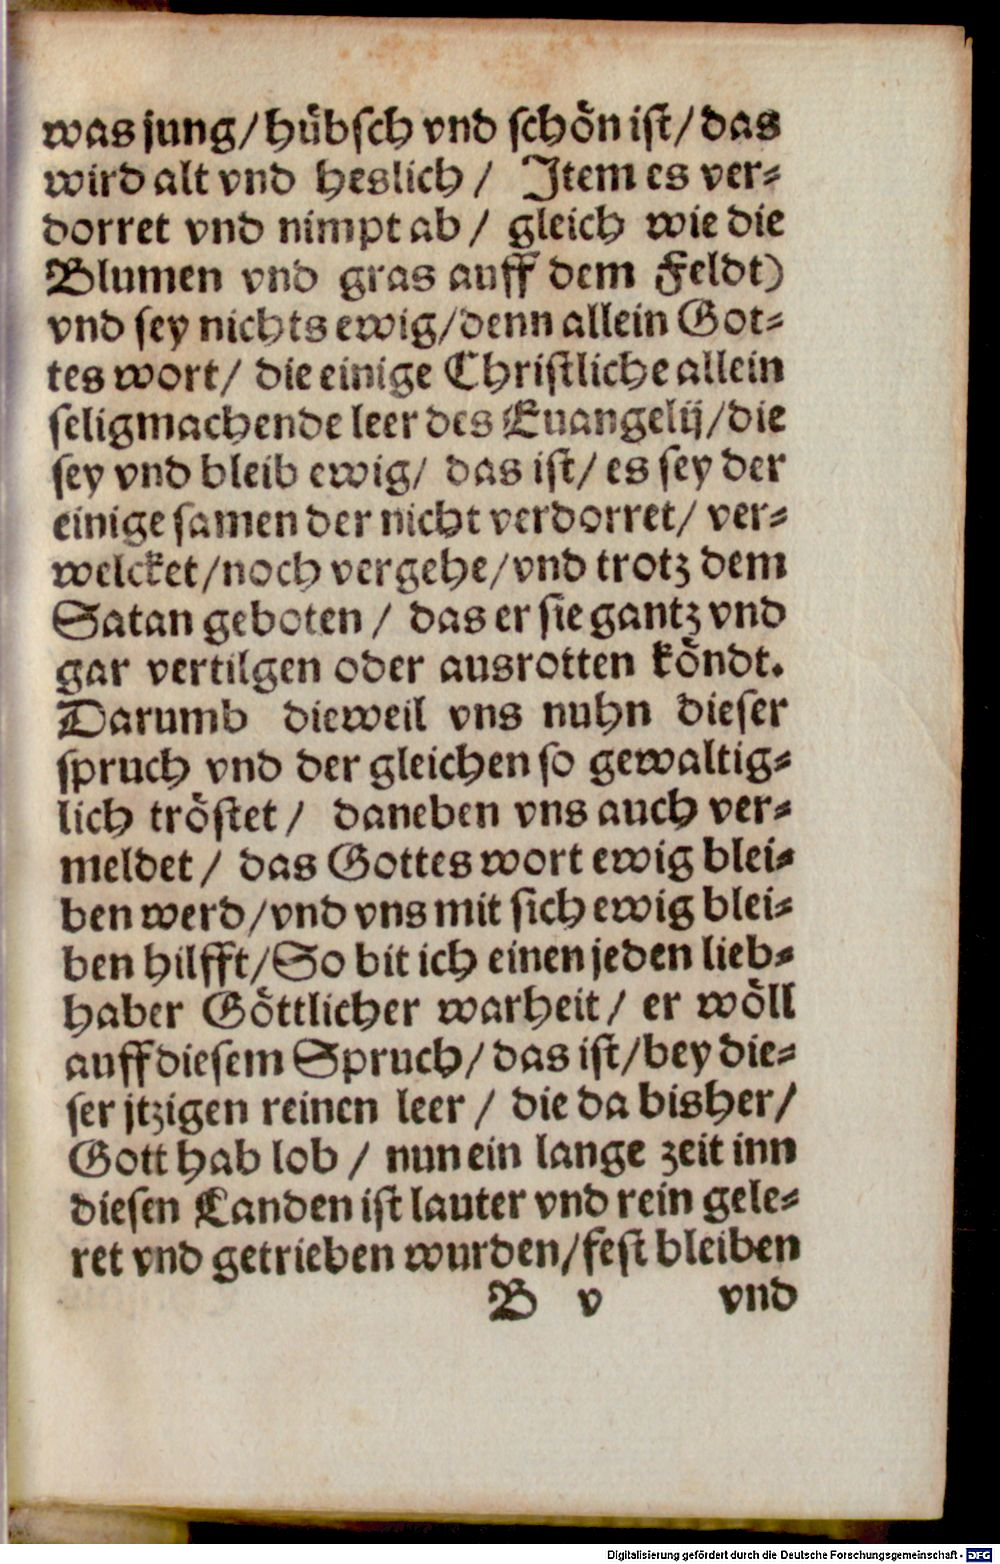 was jung/ hübsch vnd schön ist/ das
wird alt vnd heslich/ Item es ver⸗
dorret vnd nimpt ab/ gleich wie die
Blumen vnd gras auff dem Feldt)
vnd sey nichts ewig/ denn allein Got⸗
tes wort/ die einige Christliche allein
seligmachende leer des Euangelij/ die
sey vnd bleib ewig/ das ist/ es sey der
einige samen der nicht verdorret/ ver⸗
welcket/ noch vergehe/ vnd trotz dem
Satan geboten/ das er sie gantz vnd
gar vertilgen oder ausrotten köndt.
Darumb dieweil vns nuhn dieser
spruch vnd der gleichen so gewaltig⸗
lich tröstet/ daneben vns auch ver⸗
meldet/ das Gottes wort ewig blei⸗
ben werd/ vnd vns mit sich ewig blei⸗
ben hilfft/ So bit ich einen jeden lieb⸗
haber Göttlicher warheit/ er wöll
auff diesem Spruch/ das ist/ bey die⸗
ser jtzigen reinen leer/ die da bisher/
Gott hab lob/ nun ein lange zeit inn
diesen Landen ist lauter vnd rein gele⸗
ret vnd getrieben wurden/ fest bleiben
B v vnd
Digitalisierung gefördert durch die Deutsche Forschungsgemeinschaft - DFG